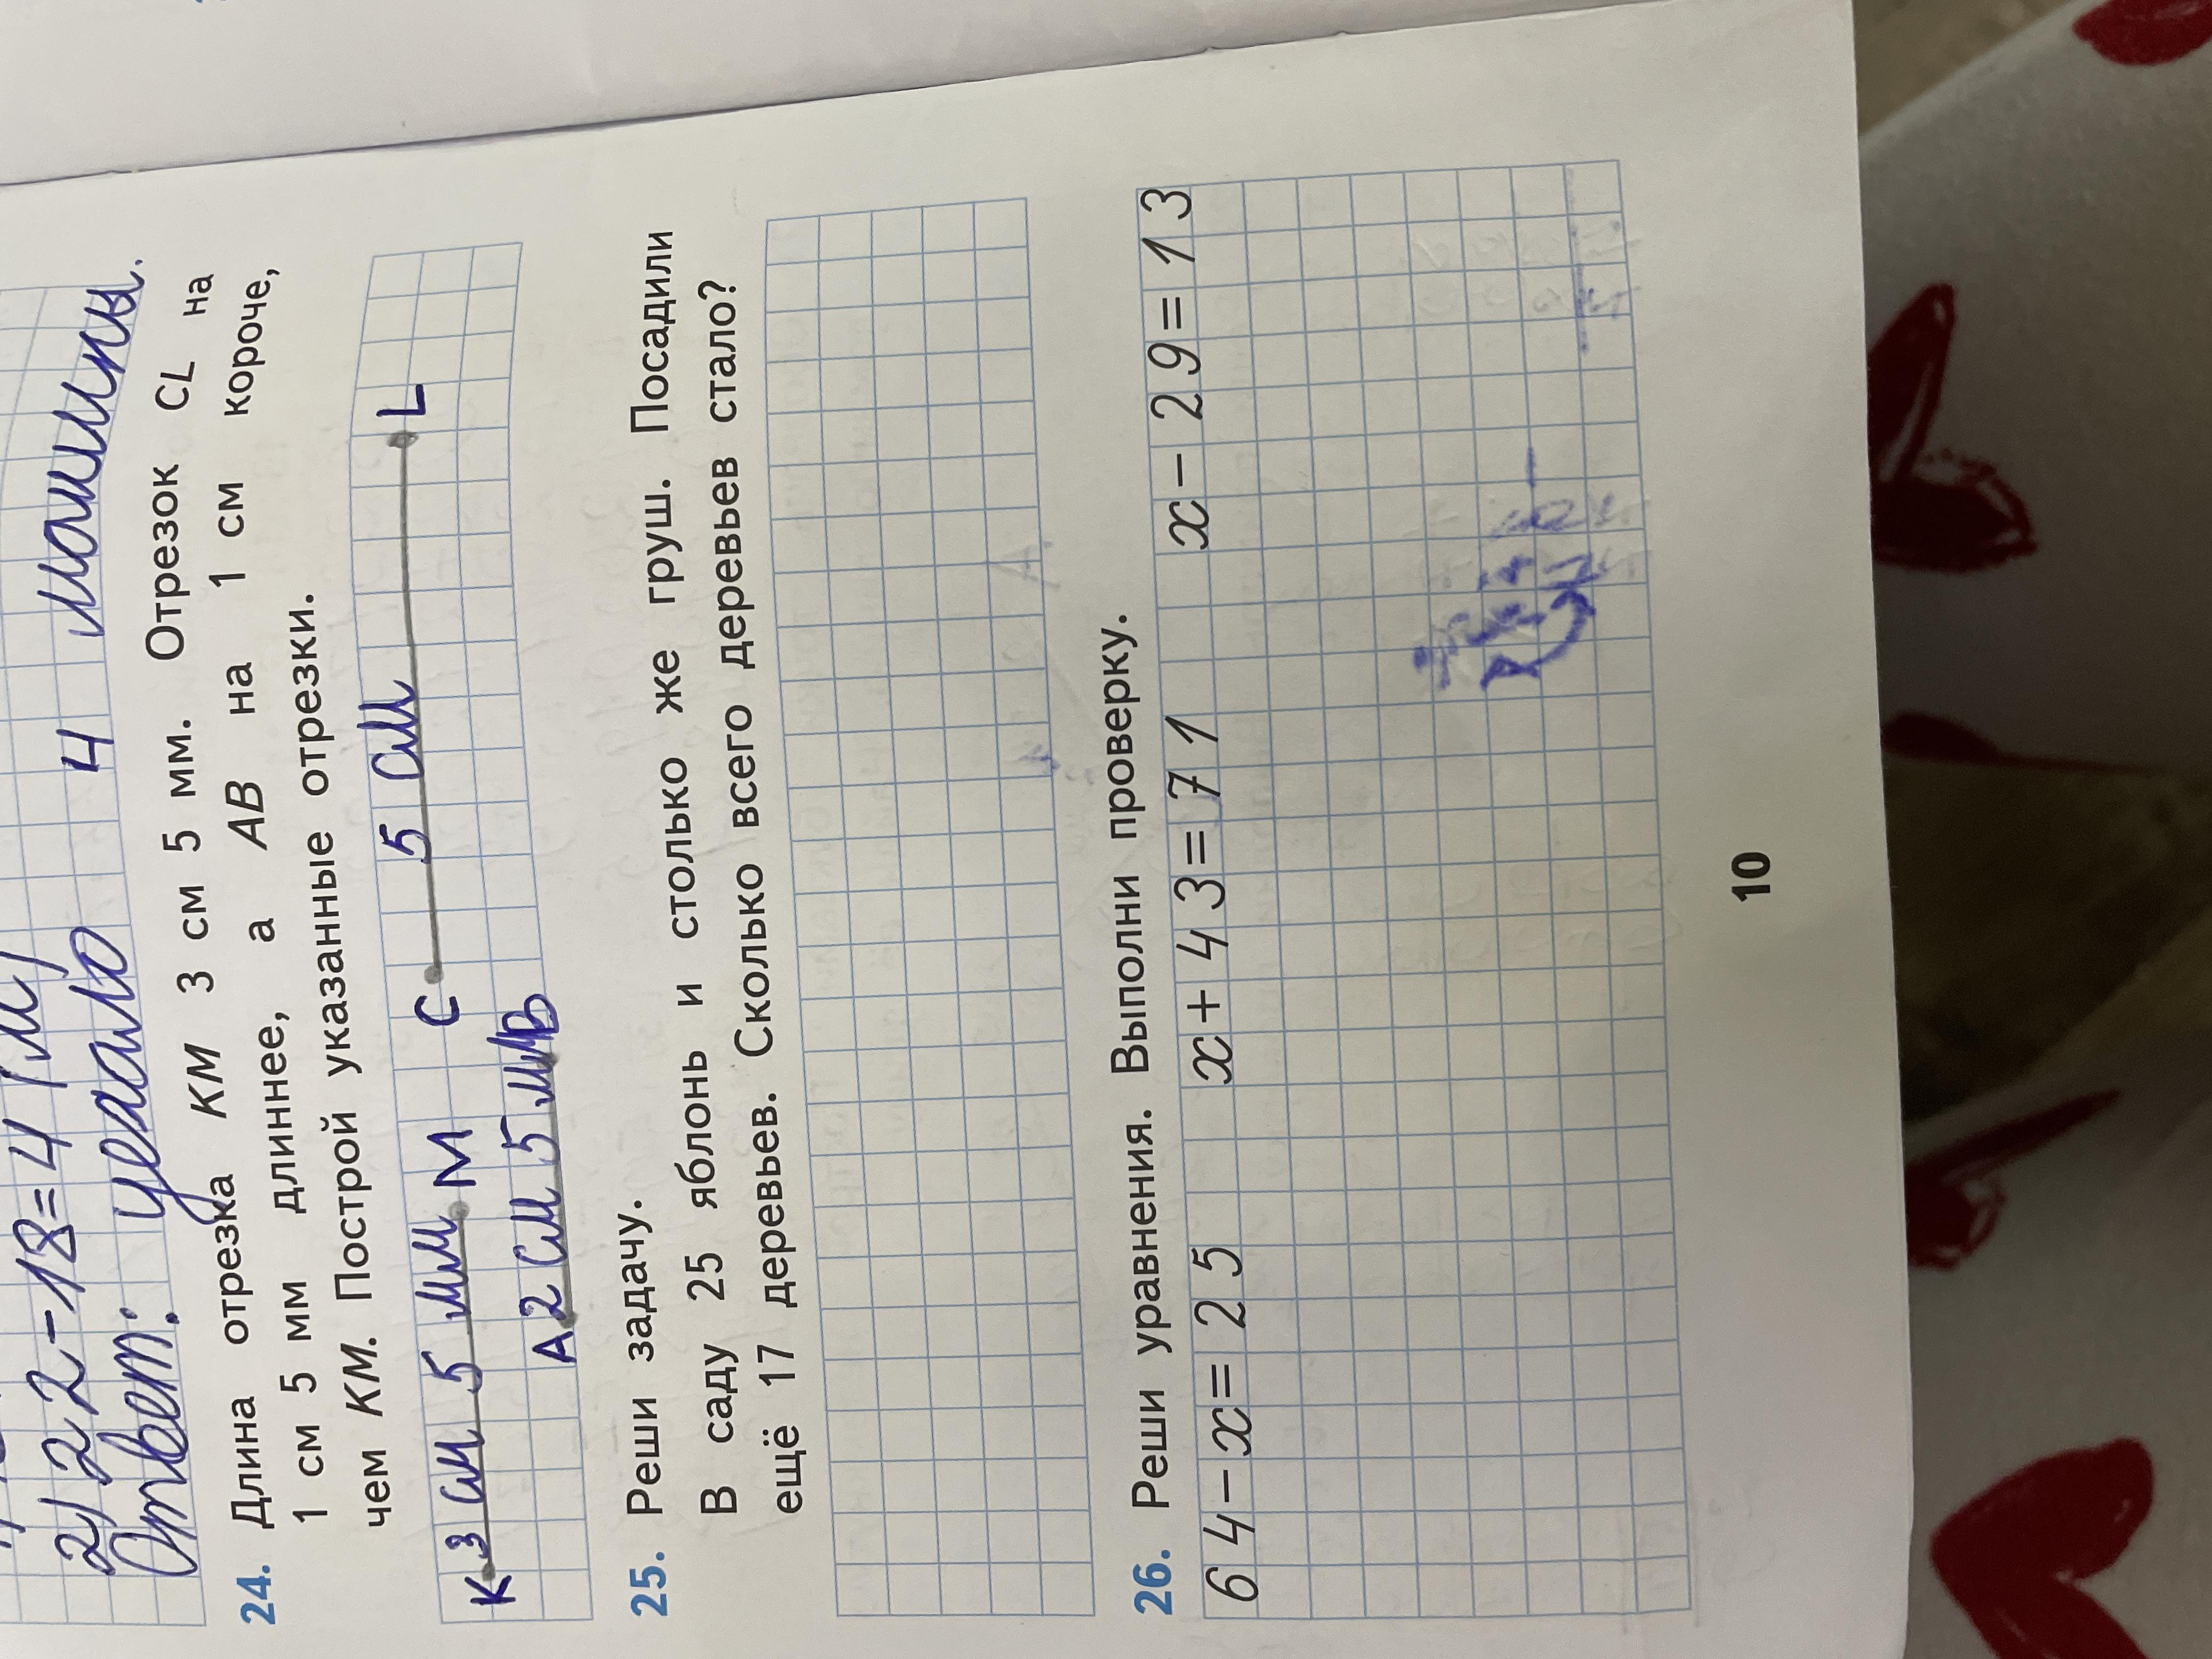 2) 22-18=4 (м)
Ответ: уехало 4 машины.
24. Длина отрезка KM 3 см 5 мм. Отрезок CL на
1 см 5 мм длиннее, а AB на 1 см короче,
чем KM. Построй указанные отрезки.
K 3 см 5 мм M C 5 см L
A 2 см 5 мм B
25. Реши задачу.
В саду 25 яблонь и столько же груш. Посадили
ещё 17 деревьев. Сколько всего деревьев стало?
26. Реши уравнения. Выполни проверку.
64-x=25 x+43=71 x-29=13
10